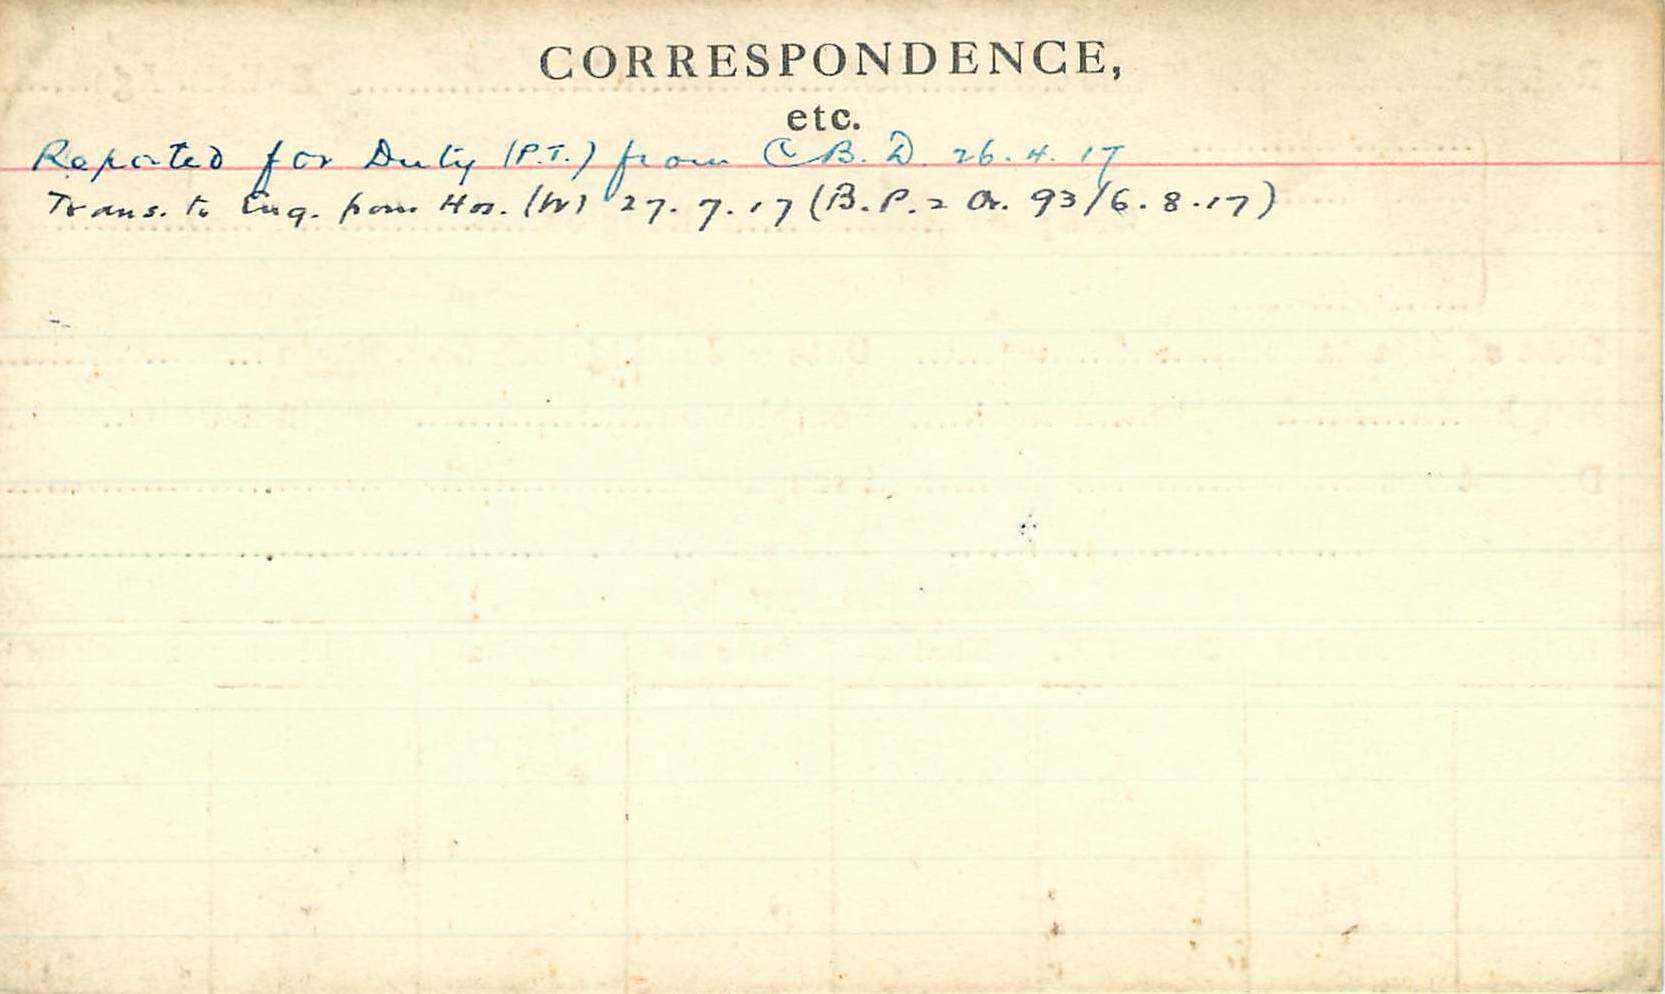 CORRESPONDENCE,
etc.
Reported for Duty (P.T.) from C B. D. 26.4.17
Trans. to Eng. from Hos. (W) 27.7.17 (B.P.2 Or. 93/6.8.17)